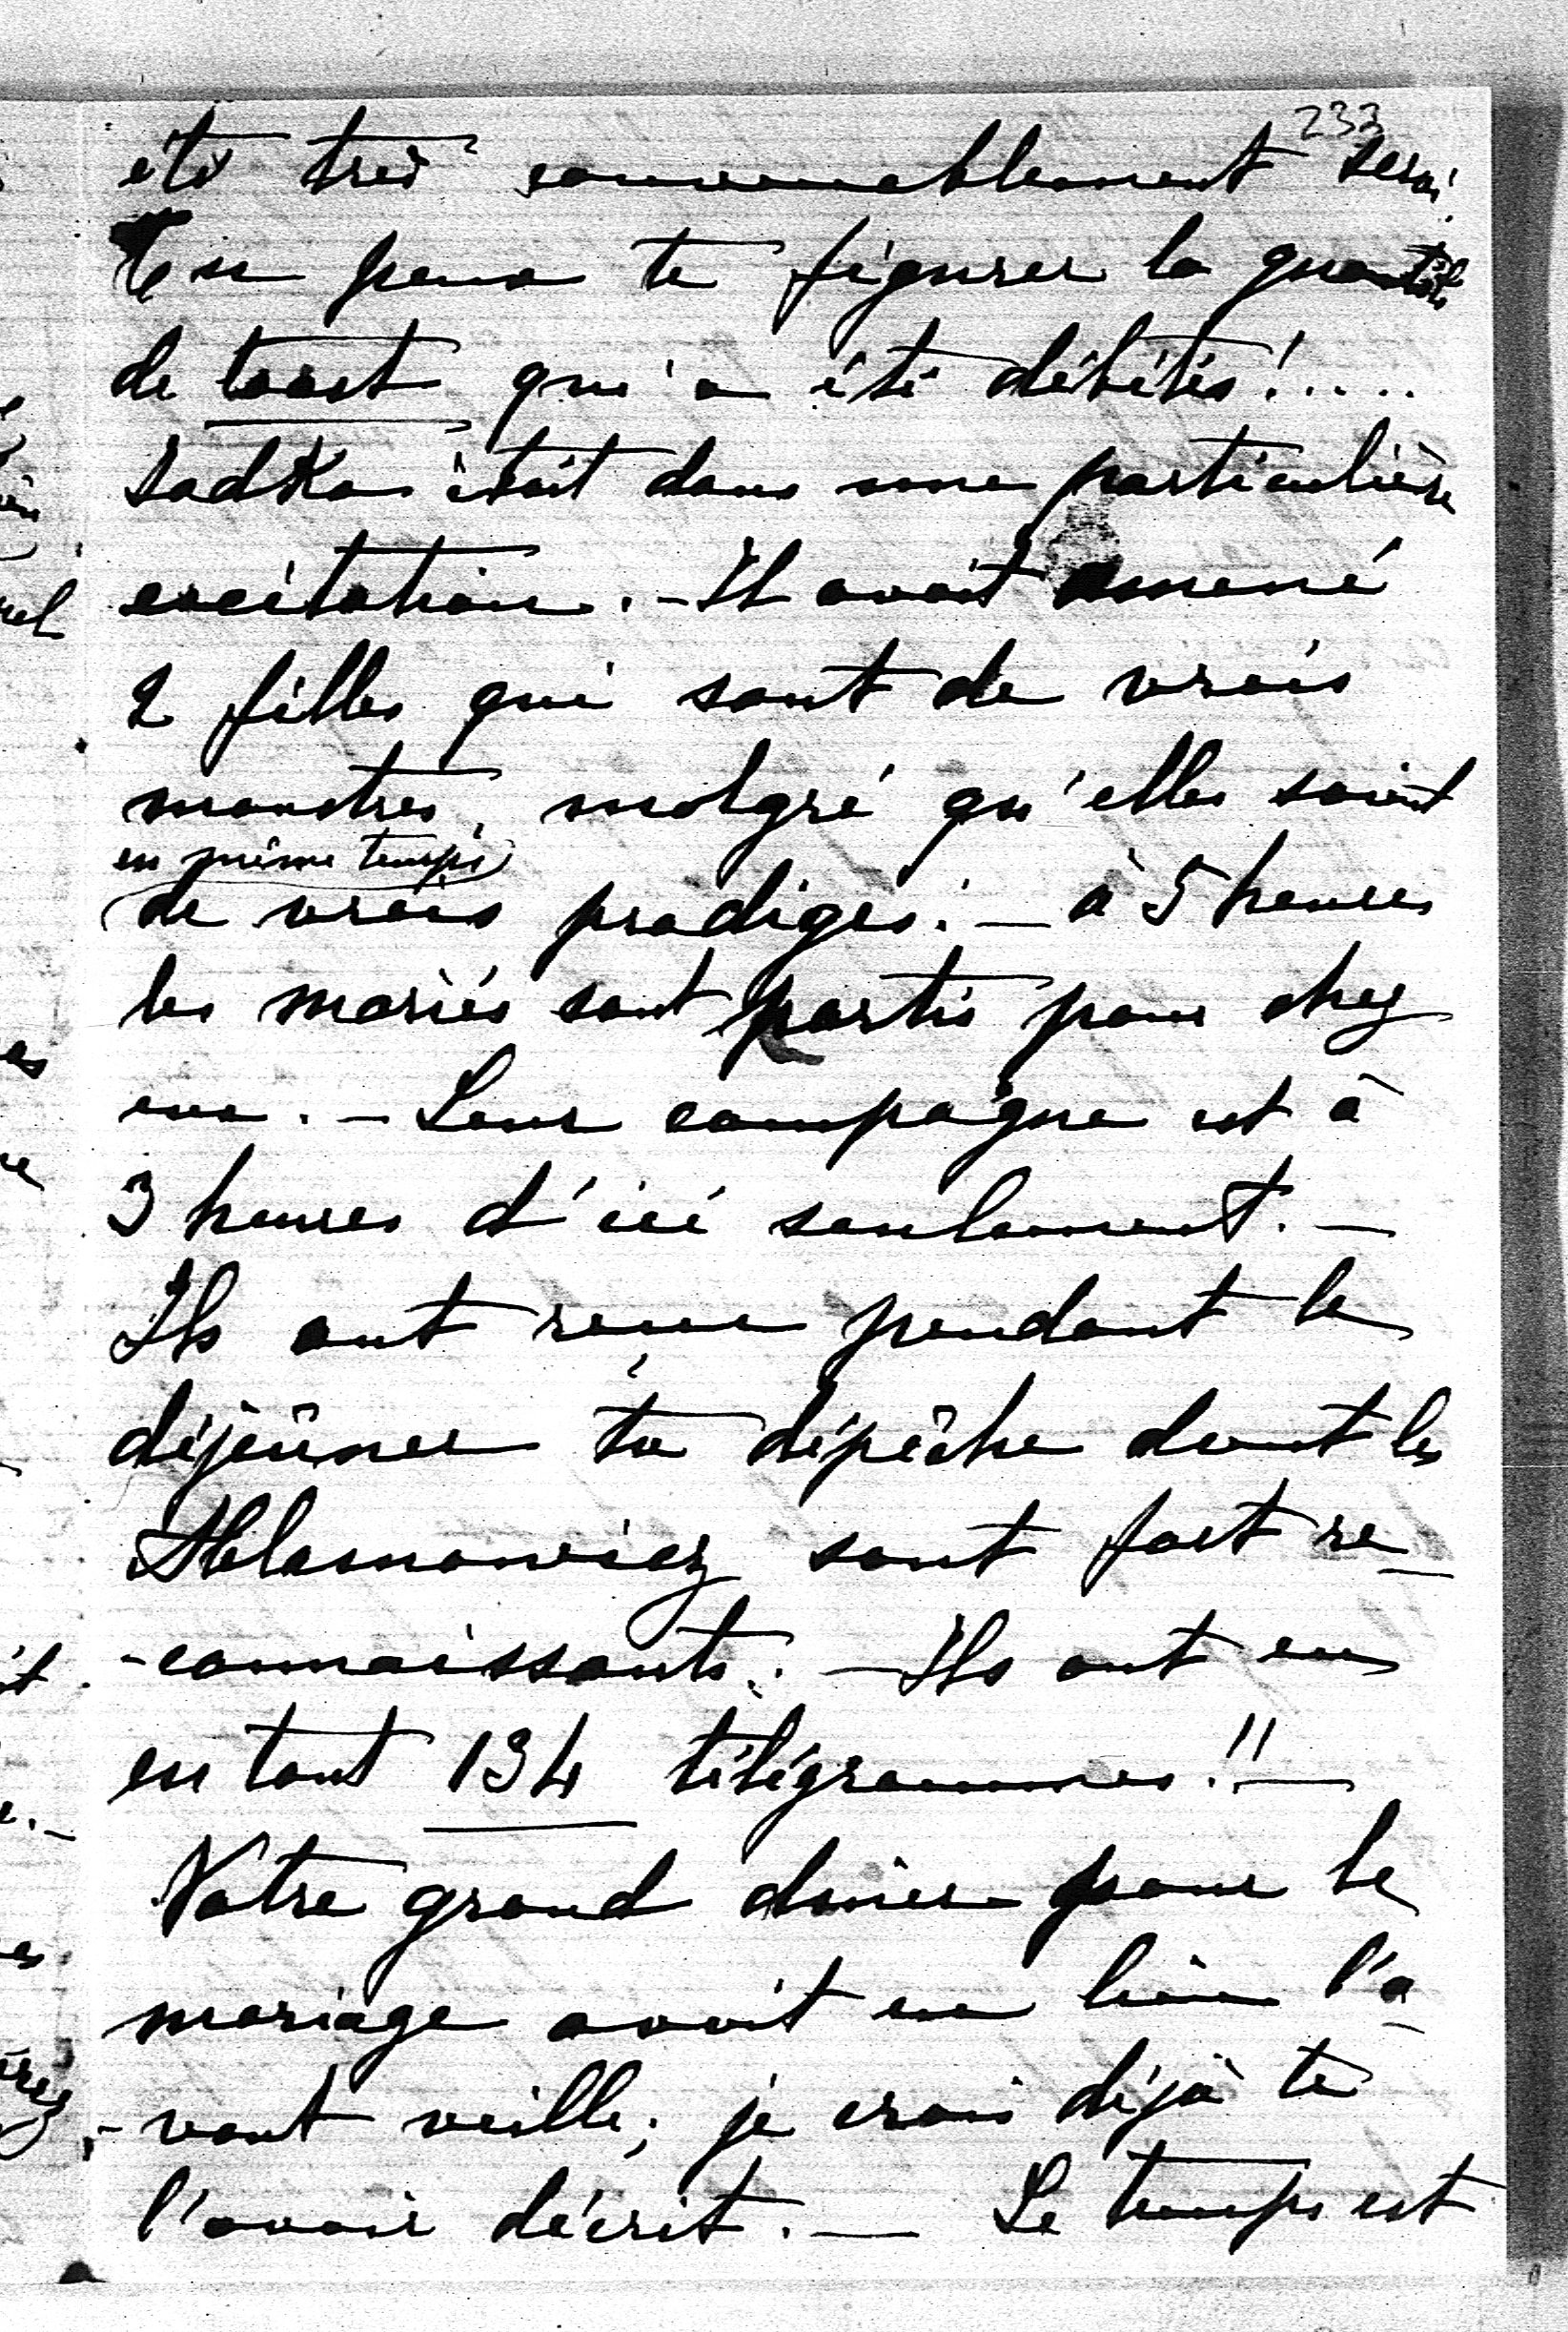 233
été très convenablement servi.
Tu peux te figurer la quantité
de toast qui a été débités!.....
Sadko était dans une particulière
excitation. - Il avait amené
2 filles qui sont de vrais
monstres, malgré qu'elles soient
en même temps
de vrais prodiges. - à 5 heures
les mariés sont partis pour chez
eux. - Leur campagne est à
3 heures d'ici seulement. -
Ils ont reçu pendant le
déjeûner ta dépêche dont les
sont fort re-
-connaissants. - Ils ont eu
en tout 134 télégrammes!! -
Notre grand diner pour le
mariage avait eu lieu l'a-
-vant veille; je crois déjà te
l'avoir décrit. - Le temps est